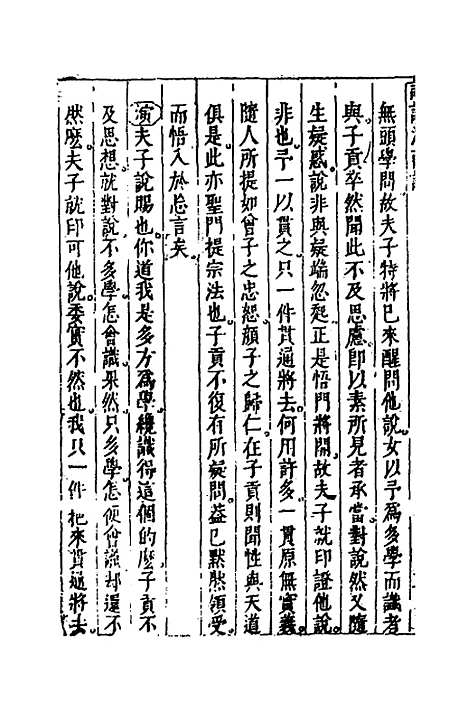 無頭學問故夫子特將己來醒問他說女以予為多學而識者
與子貢卒然聞此不及思慮卽以素所見者承當對說然又隨
生疑惑說非與疑端忽起正是悟門將開故夫子就印證他說
非也予一以貫之只一件貫通將去何用許多一貫原無實義
隨人所提如曾子之忠恕顏子之歸仁在子貢則聞性與天道
俱是此亦聖門提宗法也子貢不復有所疑問益已默然領受
而悟入於忘言矣
演夫子說賜也你道我是多方為學纔識得這個的麼子貢不
及思想就對說不多學怎會識果然只多學怎便會識却還不
然麼夫子就印可他說委實不然也我只一件把來貫通將去